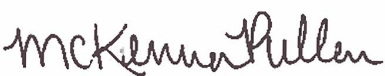 McKenna Pullen